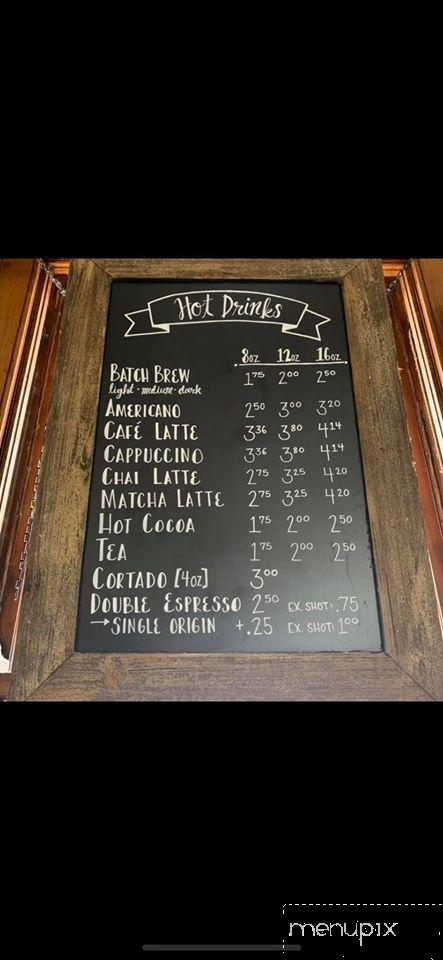 Hot Drinks
8oz 12oz 16oz
BATCH BREW 1.75 2.00 2.50
light · medium · dark
AMERICANO 2.50 3.00 3.20
CAFÉ LATTE 3.36 3.80 4.14
CAPPUCCINO 3.36 3.80 4.14
CHAI LATTE 2.75 3.25 4.20
MATCHA LATTE 2.75 3.25 4.20
HOT COCOA 1.75 2.00 2.50
TEA 1.75 2.00 2.50
CORTADO [4oz] 3.00
DOUBLE ESPRESSO 2.50 EX. SHOT: .75
→ SINGLE ORIGIN +.25 EX. SHOT: 1.00
menupix